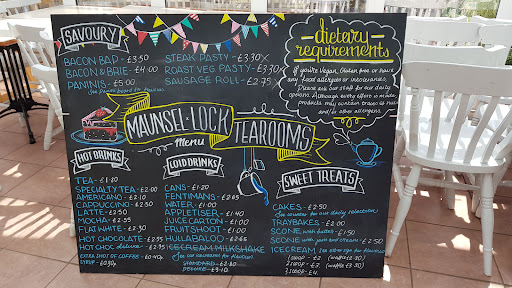 SAVOURY
BACON BAP - £3.50
BACON & BRIE - £4.00
PANINIS - £5.00
STEAK PASTY - £3.30
ROAST VEG PASTY - £3.30
SAUSAGE ROLL - £2.75
dietary requirements
If you're Vegan, Gluten free or have any food allergies or intolerances,
Please ask our staff for our daily options. Although every effort is made,
products may contain traces of nuts and/or other allergens.
MAUNSEL LOCK TEAROOMS
Menu
HOT DRINKS
TEA - £1.80
SPECIALTY TEA - £2.00
AMERICANO - £2.10
CAPPUCCINO - £2.50
LATTE - £2.50
MOCHA - £2.55
FLAT WHITE - £2.30
HOT CHOCOLATE - £2.35
HOT CHOC deluxe - £2.95
EXTRA SHOT OF COFFEE - £0.40p
SYRUP - £0.30p
COLD DRINKS
CANS - £1.20
FENTIMANS - £2.65
WATER - £1.00
APPLETISER - £1.40
JUICE CARTON - £1.00
FRUIT SHOOT - £1.00
HULLABALOO - £2.65
ICECREAM MILKSHAKE
STANDARD - £2.90
DELUXE - £3.40
SWEET TREATS
CAKES - £2.50
See counter for our daily selection
TRAYBAKES - £2.00
SCONE with butter - £1.50
SCONE with jam and cream - £2.50
ICECREAM